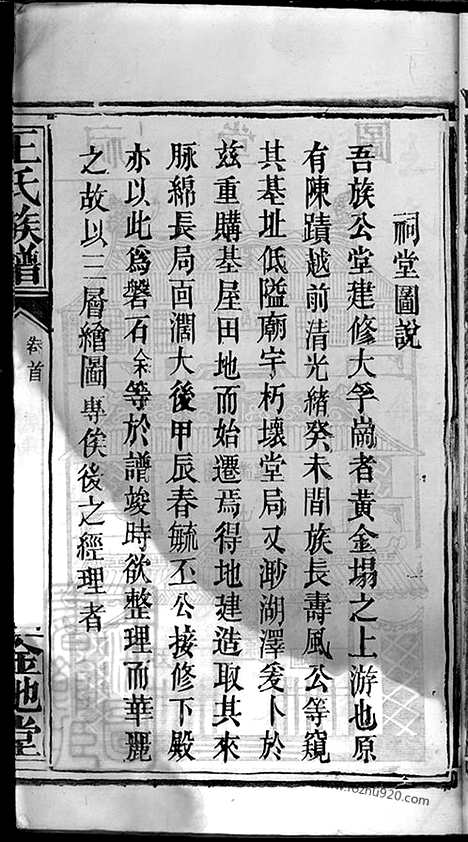 祠堂圖說
吾族公堂建修大孚崗者黃金塌之上游也原
有陳蹟越前清光緒癸未間族長壽風公等窺
其基址低隘廟宇朽壞堂局又渺湖澤爰卜於
茲重購基屋田地而始遷焉得地建造取其來
脉綿長局面濶大後甲辰春毓丕公接修下殿
亦以此為磐石余等於譜竣時欲整理而華麗
之故以三層繪圖專俟後之經理者
王氏族譜
卷首
三金池堂
www.rozhu920.com